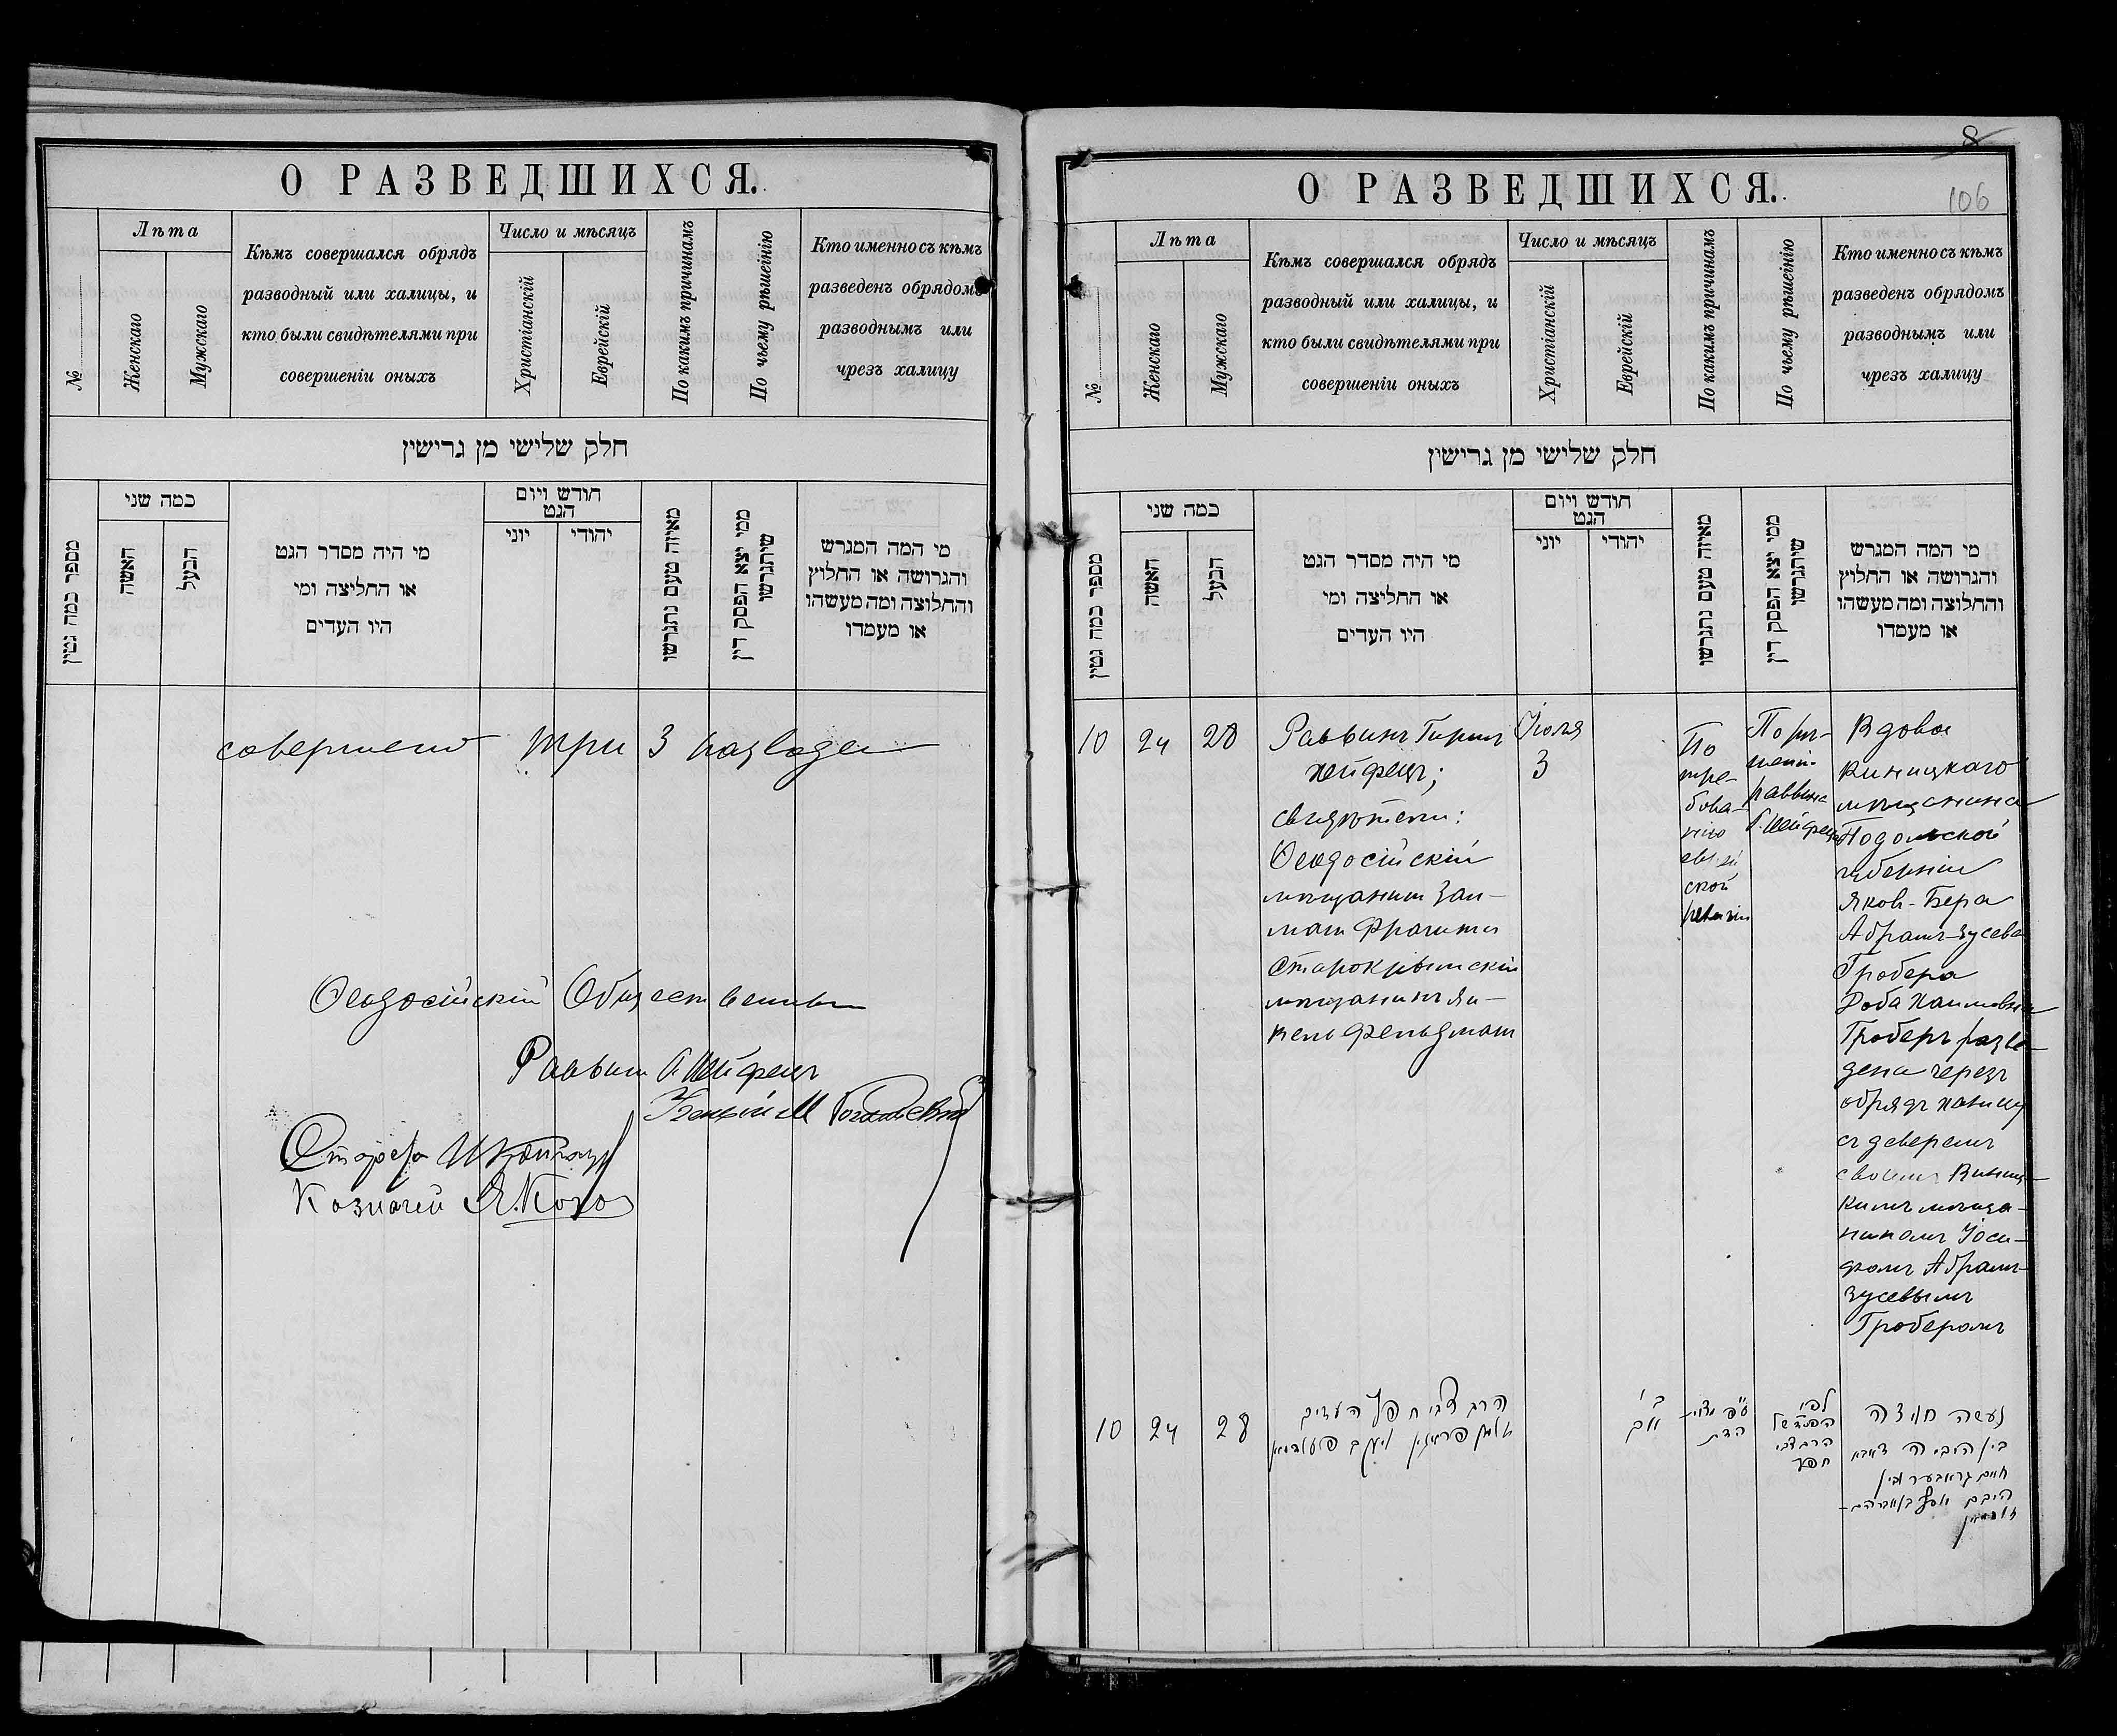 О РАЗВЕДШИХСЯ.
№
Лѣта
Женскаго
Мужскаго
Кѣмъ совершался обрядъ
разводный или халицы, и
кто были свидѣтелями при
совершеніи оныхъ
Число и мѣсяцъ
Христіанскій
Еврейскій
По какимъ причинамъ
По чьему рѣшенію
Кто именно съ кѣмъ
разведенъ обрядомъ
разводнымъ или
чрезъ халицу
חלק שלישי מן גרישין
מספר כמה גטין
כמה שני
האשה
הבעל
מי היה מסדר הגט
או החליצה ומי
היו העדים
חודש ויום
הגט
יוני
יהודי
מאיזה טעם נתגרשו
ממי יצא הפסק דין
שיתגרשו
מי המה המגרש
והגרושה או החלוץ
והחלוצה ומה מעשהו
או מעמדו
совершено три 3 развода
Ѳеодосійскій Общественный
Раввинъ Г. Хейфецъ
Староста
Казначей
8
106
О РАЗВЕДШИХСЯ.
№
Лѣта
Женскаго
Мужскаго
Кѣмъ совершался обрядъ
разводный или халицы, и
кто были свидѣтелями при
совершеніи оныхъ
Число и мѣсяцъ
Христіанскій
Еврейскій
По какимъ причинамъ
По чьему рѣшенію
Кто именно съ кѣмъ
разведенъ обрядомъ
разводнымъ или
чрезъ халицу
חלק שלישי מן גרישין
מספר כמה גטין
כמה שני
האשה
הבעל
מי היה מסדר הגט
או החליצה ומי
היו העדים
חודש ויום
הגט
יוני
יהודי
מאיזה טעם נתגרשו
ממי יצא הפסק דין
שיתגרשו
מי המה המגרש
והגרושה או החלוץ
והחלוצה ומה מעשהו
או מעמדו
10
24
28
Раввинъ Гиршъ
Хейфецъ;
свидѣтели:
Ѳеодосійскій
мѣщанинъ Зал-
манъ
Старокрымскій
мѣщанинъ Ян-
кель Фельдманъ
Іюля
3
По
тре-
бова-
нію
еврей
ской
религіи
По рѣ-
шен.
раввина
Г. Хейфеца
Вдова
Виницкаго
мѣщанина
Подольской
губерніи
Яковъ-Бера
Абрамъ-Зусева
Гробера
Доба Хаимовна
Гроберъ разве-
дена черезъ
обрядъ халицу
съ деверемъ
своимъ Винниц-
кимъ мѣща-
ниномъ Іоси-
фомъ Абрамъ-
Зусевымъ
Гроберомъ
10
24
28
הרב צבי חפץ העדים
ויעקב פעלדמאן
ב׳
אב
ע״פ מצות
הדת
לפי
הרב צבי
חפץ
נעשה חליצה
חיים גראבער ובין
היבם יוסף בן אברהם-